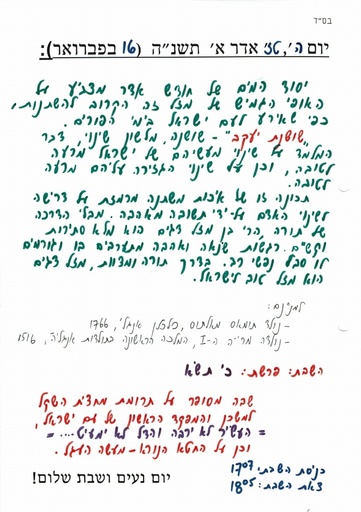 בס"ד
יום ה', טז' אדר א' תשנ"ה (16 בפברואר):
יסוד המים של חודש אדר מצביע על
האופי הגמיש של מזל זה הקרוב להשתנות,
כפי שאירע לעם ישראל בימי הפורים.
"שושנת יעקב" - שושנה, מלשון שינוי, דבר
המלמד על שינוי מעשיהם של ישראל מרעה
לטובה, וכן על שינוי הגזירה עליהם מרעה
לטובה.
תכונה זו של איכות משתנה מרמזת על דרישה
לשינוי האדם על-ידי תשובה מאהבה. מבלי הדרכה
של תורה, הרי בן מזל דגים הוא מלא סתירות
וקשיים. רגשות שנאה ואהבה מתערבים בו וגורמים
לו סבל נפשי רב. בדרך תורה ומצוות, מזל דגים
הוא מזל טוב לישראל.
למנינם:
- נולד תומאס מאלתוס, כלכלן אנגלי, 1766
- נולדה מרי ה-I, המלכה הראשונה בתולדות אנגליה, 1516
השבת: פרשת: כי תשא
שבה מסופר על תרומת מחצית השקל
למשכן והמפקד הראשון של עם ישראל,
= העשיר לא ירבה והדל לא ימעיט.... =
וכן על החטא הנורא - מעשה העגל.
כניסת השבת: 17:07
צאת השבת: 18:05
יום נעים ושבת שלום!